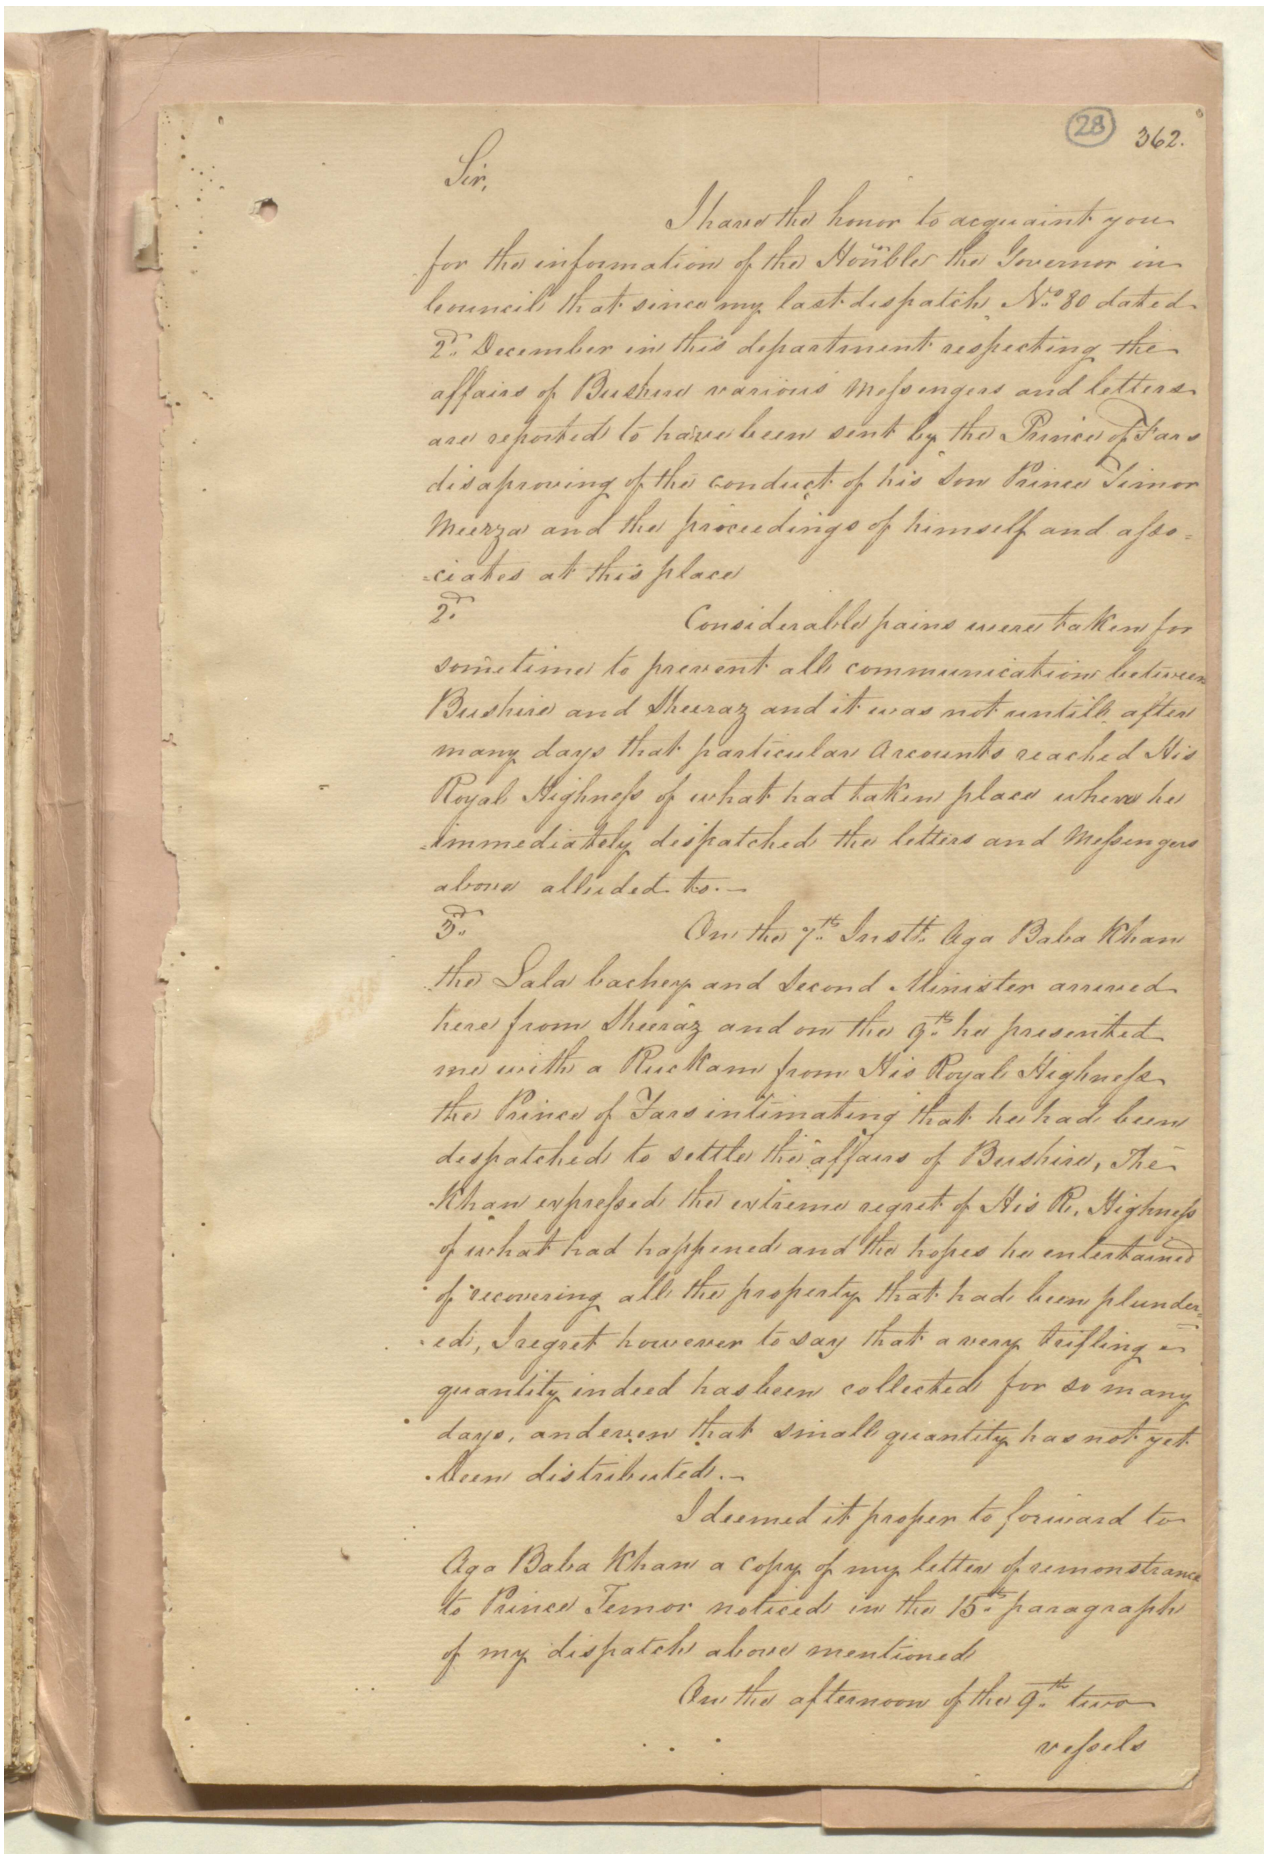 28 362.
Sir,
I have the honor to acquaint you
for the information of the Honble the Governor in
Council that since my last dispatch No. 80 dated
2d. December in this department respecting the
affairs of Bushire various Messengers and letters
are reported to have been sent by the Prince of Fars
disaproving of the conduct of his Son Prince Timor
Meerza and the proceedings of himself and asso=
=ciates at this place
2d. Considerable pains were taken for
sometime to prevent all communication between
Bushire and Sheeraz and it was not untill after
many days that particular Accounts reached His
Royal Highness of what had taken place where he
immediately dispatched the letters and Messengers
above alluded to.—
3d. On the 7th. Instt. Aga Baba Khan
the Lala bachey and Second Minister arrived
here from Sheeraz and on the 9th. he presented
me with a Ruckam from His Royal Highness
the Prince of Fars intimating that he had been
despatched to settle the affairs of Bushire, The
Khan expressed the extreme regret of His R. Highness
of what had happened and the hopes he entertained
of recovering all the property that had been plunder=
ed, I regret however to say that a very trifling
quantity indeed has been collected for so many
days, and even that small quantity has not yet
been distributed.—
I deemed it proper to forward to
Aga Baba Khan a copy of my letter of remonstrance
to Prince Temor noticed in the 15th. paragraph
of my dispatch above mentioned
On the afternoon of the 9th. two
vessels